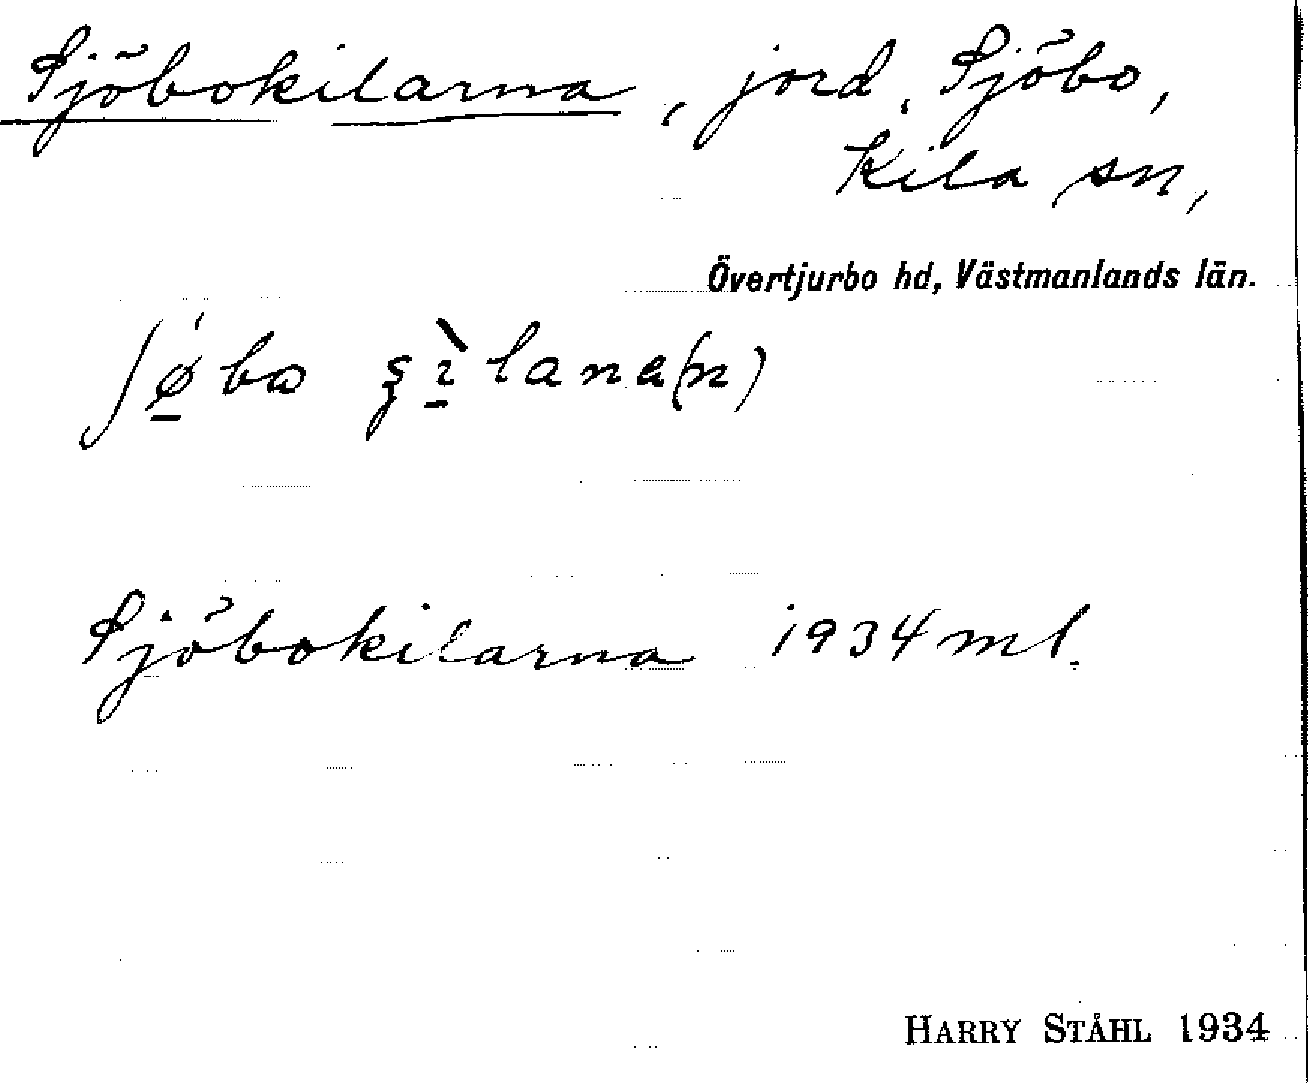 Sjöbokilarna, jord, Sjöbo,
Kila sn,
Övertjurbo hd, Västmanlands län.
Sjöbokilarna 1934 ml.
HARRY STÅHL 1934